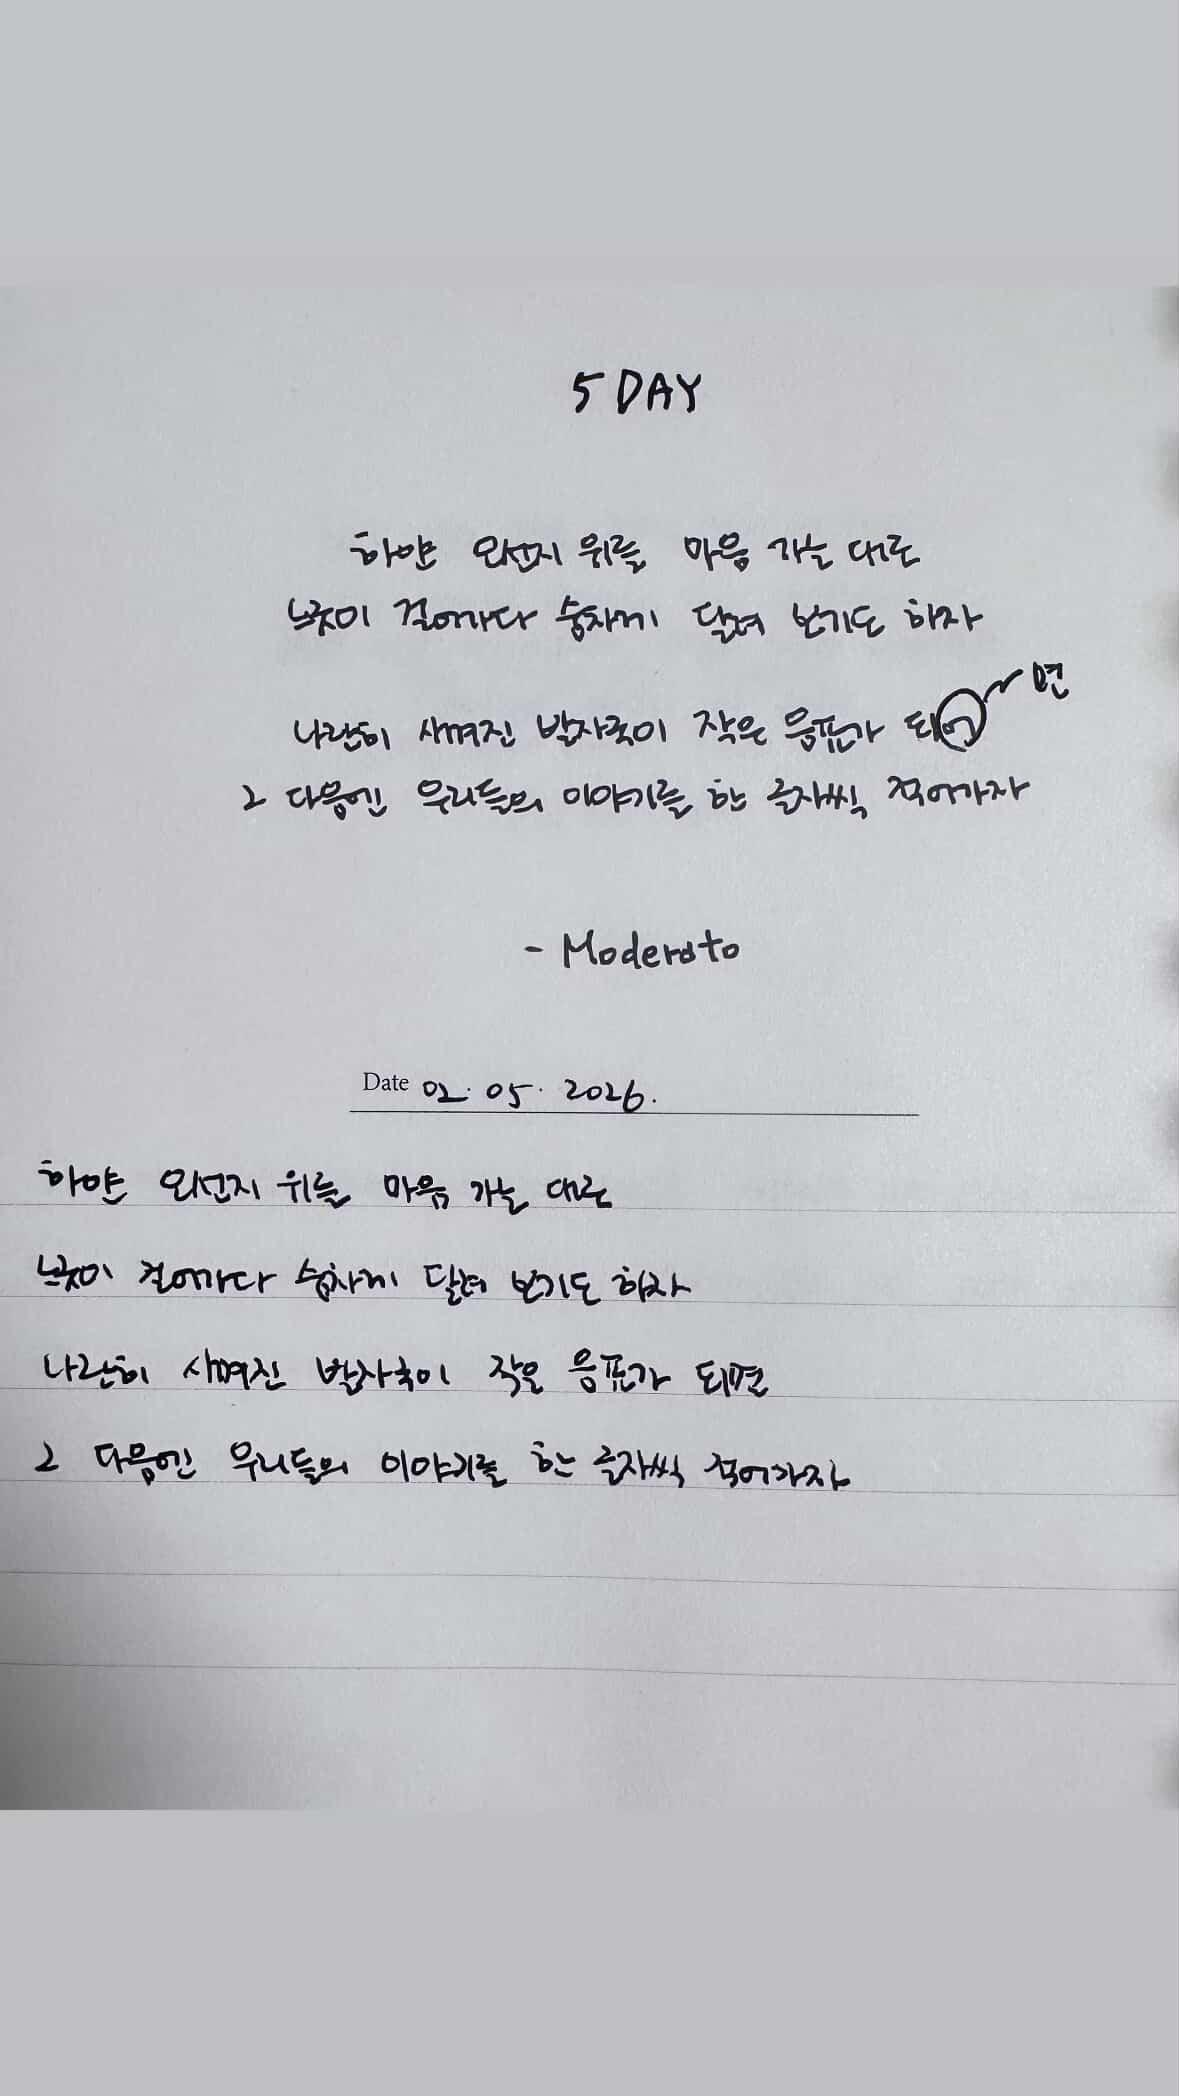 5 DAY
하얀 오선지 위를 마음 가는 대로
느긋이 걸어가다 숨차게 달려 보기도 하자
면
나란히 새겨진 발자국이 작은 음표가 되어
그 다음엔 우리들의 이야기를 한 글자씩 적어가자
- Moderato
Date 02. 05. 2026.
하얀 오선지 위를 마음 가는 대로
느긋이 걸어가다 숨차게 달려 보기도 하자
나란히 새겨진 발자국이 작은 음표가 되면
그 다음엔 우리들의 이야기를 한 글자씩 적어가자